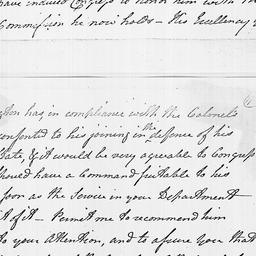 have induced Congress to honor him with the
Commission he now holds — His Excellency
gton has in compliance with the Colonels
consented to his joining in the defence of his
State, & it would be very agreable to Congress
should have a Command suitable to his
soon as the Service in your Department
it of it — Permit me to recommend him
to your Attention, and to assure you that